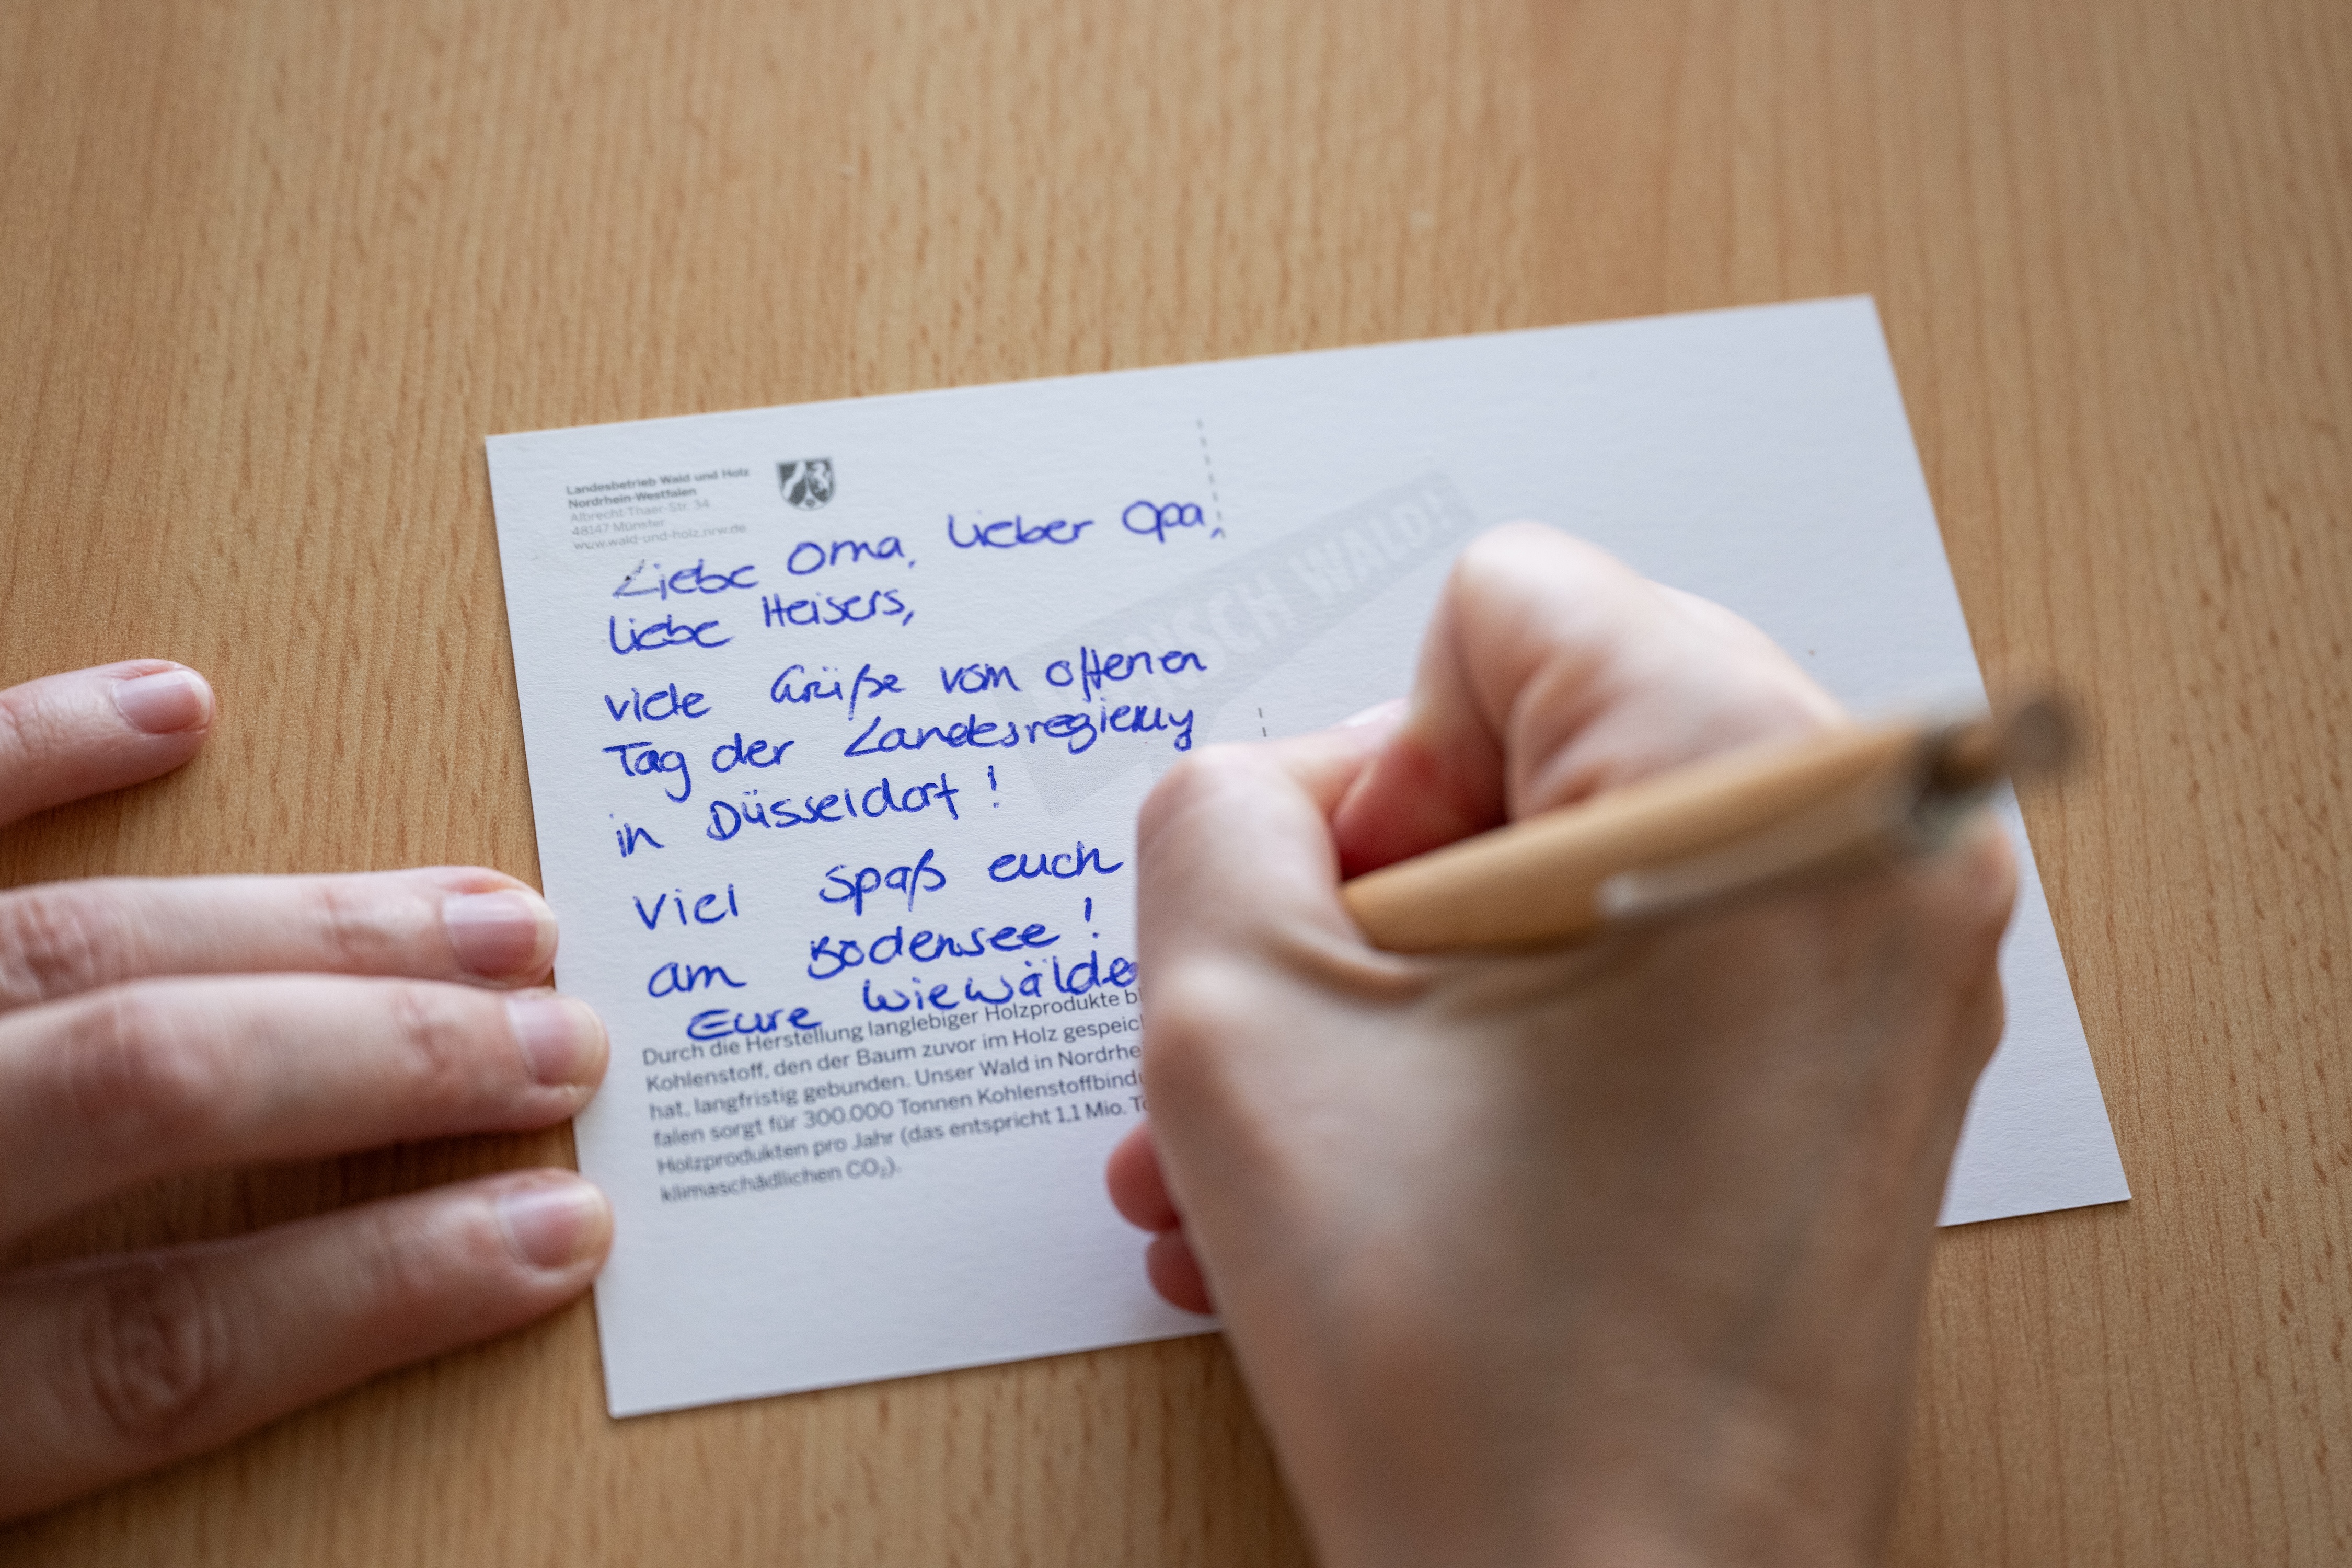 Landesbetrieb Wald und Holz
Nordrhein-Westfalen
Albrecht-Thaer-Str. 34
48147 Münster
www.wald-und-holz.nrw.de
Liebe Oma, lieber Opa,
liebe Heisers,
viele Grüße vom offenen
Tag der Landesregierung
in Düsseldorf!
Viel Spaß euch
am Bodensee!
Eure Wiewälde
WALD!
Durch die Herstellung langlebiger Holzprodukte
Kohlenstoff, den der Baum zuvor im Holz gespeic
hat, langfristig gebunden. Unser Wald in Nordrhe
falen sorgt für 300.000 Tonnen Kohlenstoffbind
Holzprodukten pro Jahr (das entspricht 1,1 Mio.
klimaschädlichen CO₂).